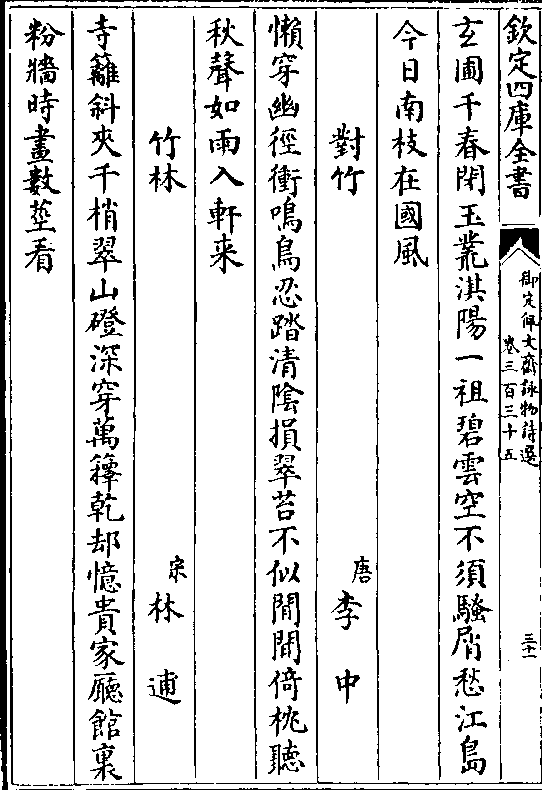 欽定四庫全書
御定佩文齋詠物詩選
卷三百三十五
三十一
玄圃千春閉玉叢淇陽一祖碧雲空不須騷屑愁江島
今日南枝在國風
對竹
唐 李中
懶穿幽徑衝鳴鳥忍踏清陰損翠苔不似閒閒倚枕聽
秋聲如雨入軒來
竹林
宋 林逋
寺籬斜夾千梢翠山磴深穿萬籜乾却憶貴家廳館裏
粉牆時畫數莖看